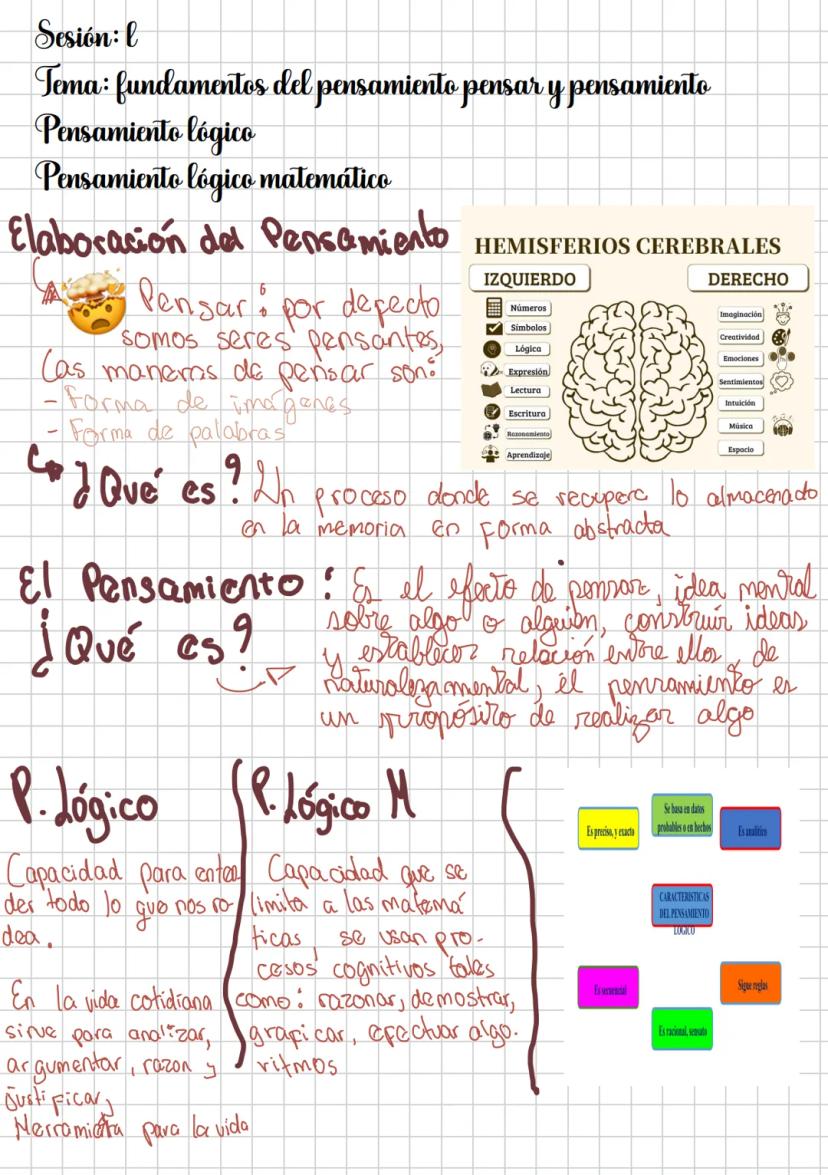 Sesión: 1
Tema: fundamentos del pensamiento pensar y pensamiento
Pensamiento lógico
Pensamiento lógico matemático
Elaboración del Pensamiento
Pensar: por defecto
somos seres pensantes,
las maneras de pensar son:
- Forma de imágenes
- Forma de palabras
HEMISFERIOS CEREBRALES
IZQUIERDO
Números
Símbolos
Lógica
Expresión
Lectura
Escritura
Razonamiento
Aprendizaje
DERECHO
Imaginación
Creatividad
Emociones
Sentimientos
Intuición
Música
Espacio
¿Qué es? Un proceso donde se recupera lo almacenado
en la memoria en forma abstracta
El Pensamiento: Es el efecto de pensar, idea mental
¿Qué es? sobre algo o alguien, construir ideas
y establecer relación entre ellos, de
naturaleza mental, el pensamiento es
un propósito de realizar algo
P. Lógico
Capacidad para enten
der todo lo que nos ro-
dea.
En la vida cotidiana
sirve para analizar,
argumentar, razon y
justificar,
Herramienta para la vida
P. Lógico M
Capacidad que se
limita a las matemá
ticas, se usan pro-
cesos cognitivos tales
como: razonar, demostrar,
graficar, efectuar algo-
ritmos
Es preciso, y exacto
Se basa en datos
probables o en hechos
Es analítico
CARACTERISTICAS
DEL PENSAMIENTO
LOGICO
Es secuencial
Sigue reglas
Es racional, sensato